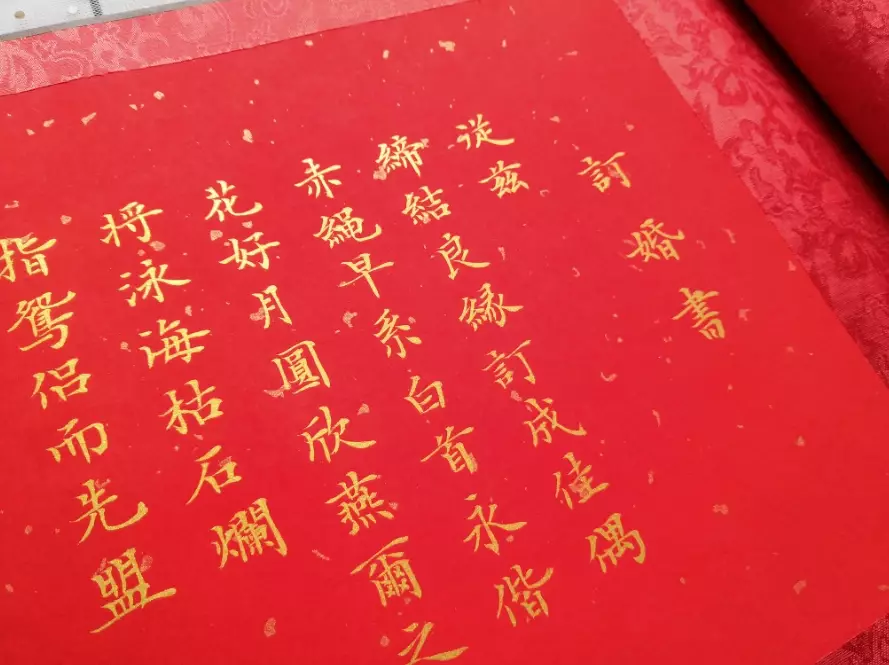 訂婚書
従兹
締結良縁訂成佳偶
赤繩早系白首永偕
花好月圓欣燕爾之
将泳海枯石爛
指鴛侶而先盟